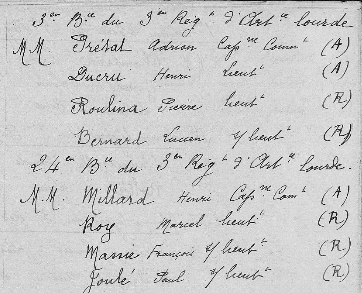 3em Bie du 3em Régt d'Artie lourde
M.M. Prétat Adrien Capne Commt (A)
Ducru Henri lieutt (A)
Roulina Pierre lieutt (R)
Bernard Lucien s/lieutt (R)
24em Bie du 3em Régt d'Artie lourde.
M.M. Millard Henri Capne Comt (A)
Roy Marcel lieutt (R)
Massie François s/lieutt (R)
Joulé Paul s/lieutt (R)